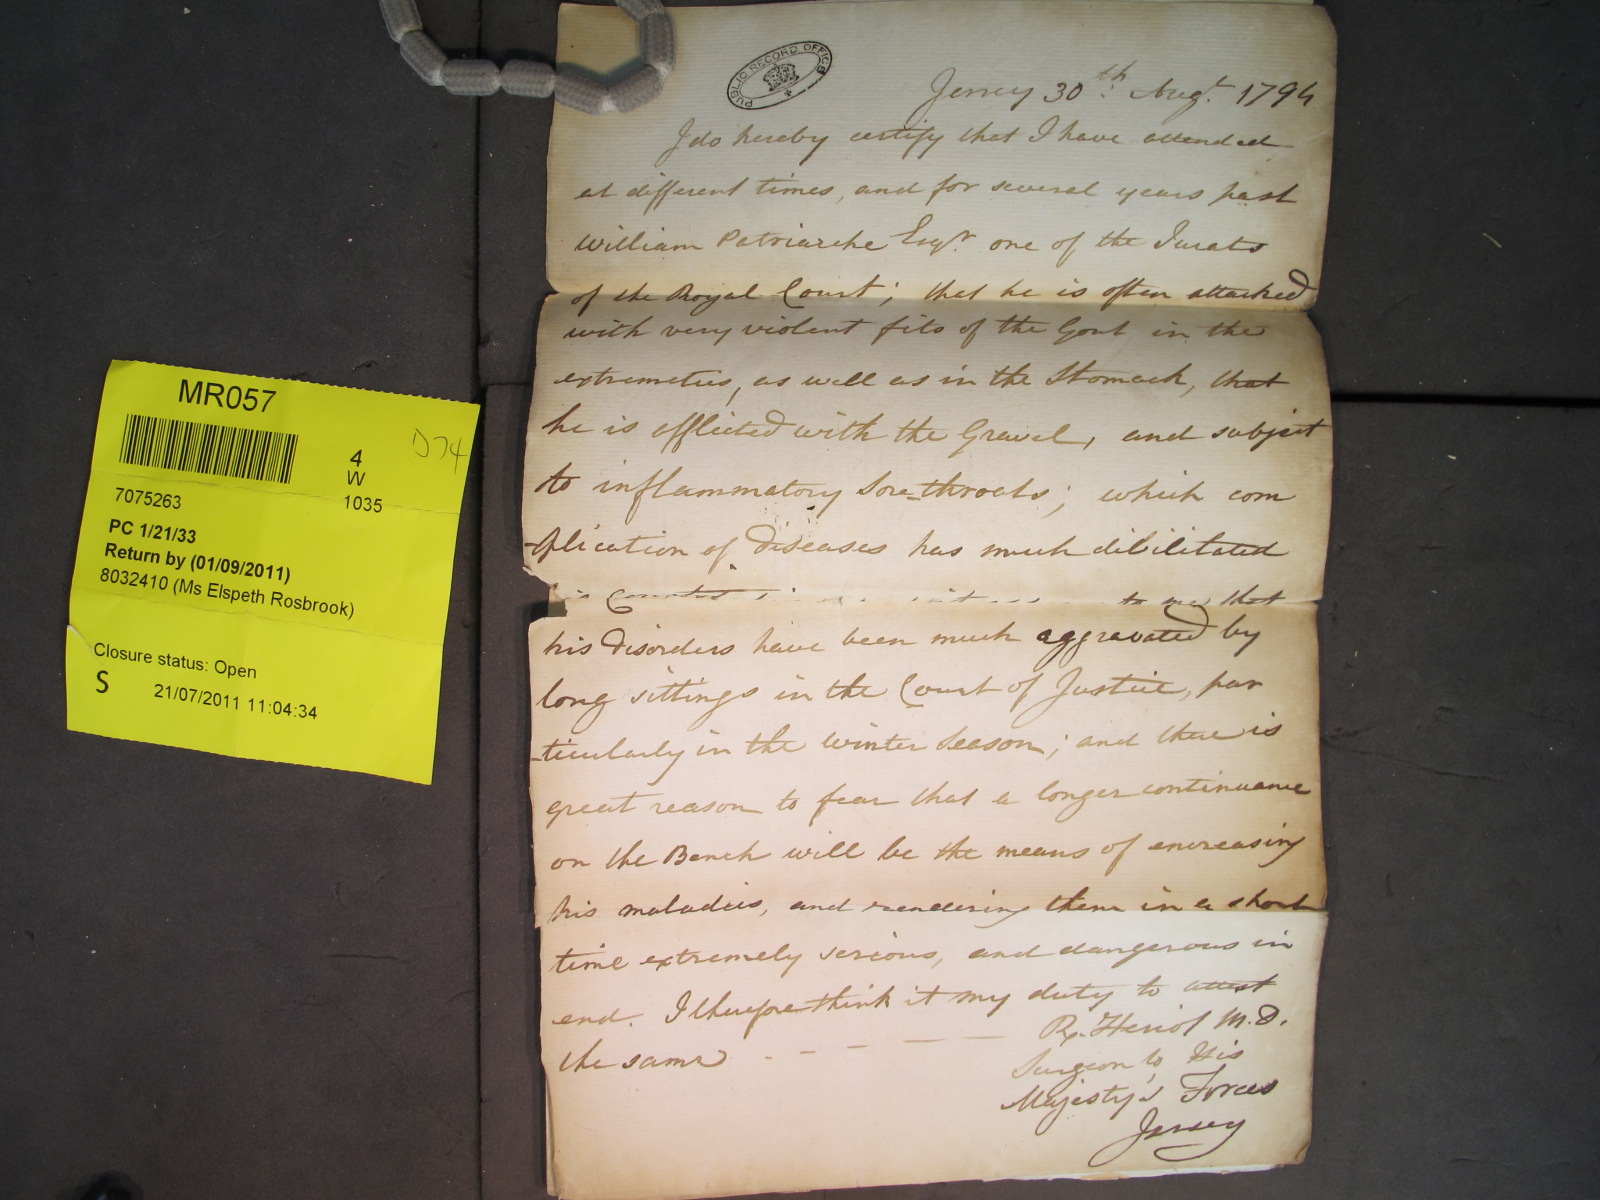 PUBLIC RECORD OFFICE
Jersey 30th Augt. 1794
I do hereby certify that I have attended
at different times, and for several years past
William Patriarche Esqr. one of the Jurats
of the Royal Court; that he is often attacked
with very violent fits of the Gout in the
extremeties, as well as in the Stomach, that
he is afflicted with the Gravel, and subject
to inflammatory Sore-throats; which com
-plication of Diseases has much dibilitated
to me that
his Disorders have been much aggravated by
long sittings in the Court of Justice, par
-ticularly in the winter Season; and there is
great reason to fear that a longer continuance
on the Bench will be the means of encreasing
his maladies, and rendering them in a short
time extremely serious, and dangerous in
end. I therefore think it my duty to attest
the same
Heriot M.D.
Surgeon to His
Majesty's Forces
Jersey
MR057
D74
4
W
7075263
1035
PC 1/21/33
Return by (01/09/2011)
8032410 (Ms Elspeth Rosbrook)
Closure status: Open
S
21/07/2011 11:04:34